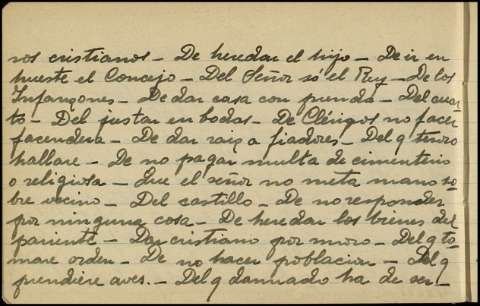 ros cristianos - De heredar el hijo - De ir en
hueste el Concejo - Del Señor só el Rey - De los
Infanzones - De dar casa con prenda - Del cuar
to - Del justar en bodas - De Clérigos no facer
facendera - De dar raiz a fiadores - Del q tesoro
hallare - De no pagar multa de cimenterio
o religiosa - Que el señor no meta mano so
bre vecino - Del castillo - De no responder
por ninguna cosa - De heredar los bienes del
pariente - Dar cristiano por moro - Del q to
mare orden - De no hacer poblacion - Del q
prendiere aves. - Del q damnado ha de ser -